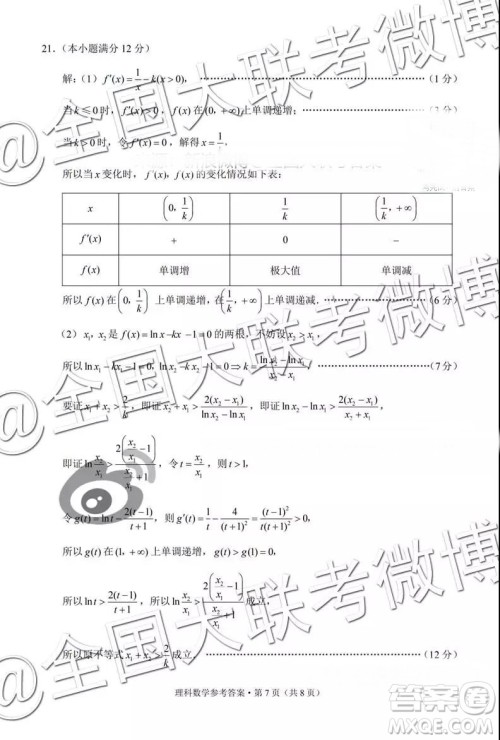 21.（本小题满分 12 分）
解：（1）f′(x)=1/x-k(x>0)，……（1 分）
当 k≤0 时，f′(x)>0，f(x) 在 (0,+∞) 上单调递增；……（2 分）
当 k>0 时，令 f′(x)=0，解得 x=1/k.
所以当 x 变化时，f′(x)，f(x) 的变化情况如下表：
x (0, 1/k) 1/k (1/k, +∞)
f′(x) + 0 −
f(x) 单调增 极大值 单调减
所以 f(x) 在 (0, 1/k) 上单调递增，在 (1/k, +∞) 上单调递减.……（6 分）
（2）x₁，x₂ 是 f(x)=ln x-kx-1=0 的两根，不妨设 x₂>x₁，
所以 ln x₁-kx₁-1=0，ln x₂-kx₂-1=0⇒k=(ln x₂-ln x₁)/(x₂-x₁).……（7 分）
要证 x₁+x₂>2/k，即证 x₂+x₁>2(x₂-x₁)/(ln x₂-ln x₁)，即证 ln x₂-ln x₁>2(x₂-x₁)/(x₂+x₁)，
即证 ln x₂/x₁>2(x₂/x₁-1)/(x₂/x₁+1)，令 t=x₂/x₁，则 t>1，
令 g(t)=ln t-2(t-1)/(t+1)，则 g′(t)=1/t-4/(t+1)²=(t-1)²/(t+1)²>0，
所以 g(t) 在 (1,+∞) 上单调递增，g(t)>g(1)=0，
所以 ln t>2(t-1)/(t+1)，所以 ln x₂/x₁>2(x₂/x₁-1)/(x₂/x₁+1) 成立，
所以原不等式 x₁+x₂>2/k 成立.……（12 分）
理科数学参考答案·第 7 页（共 8 页）
@全国大联考微博
@全国大联考微博
@全国大联考微博
答案圈
MXQE.COM